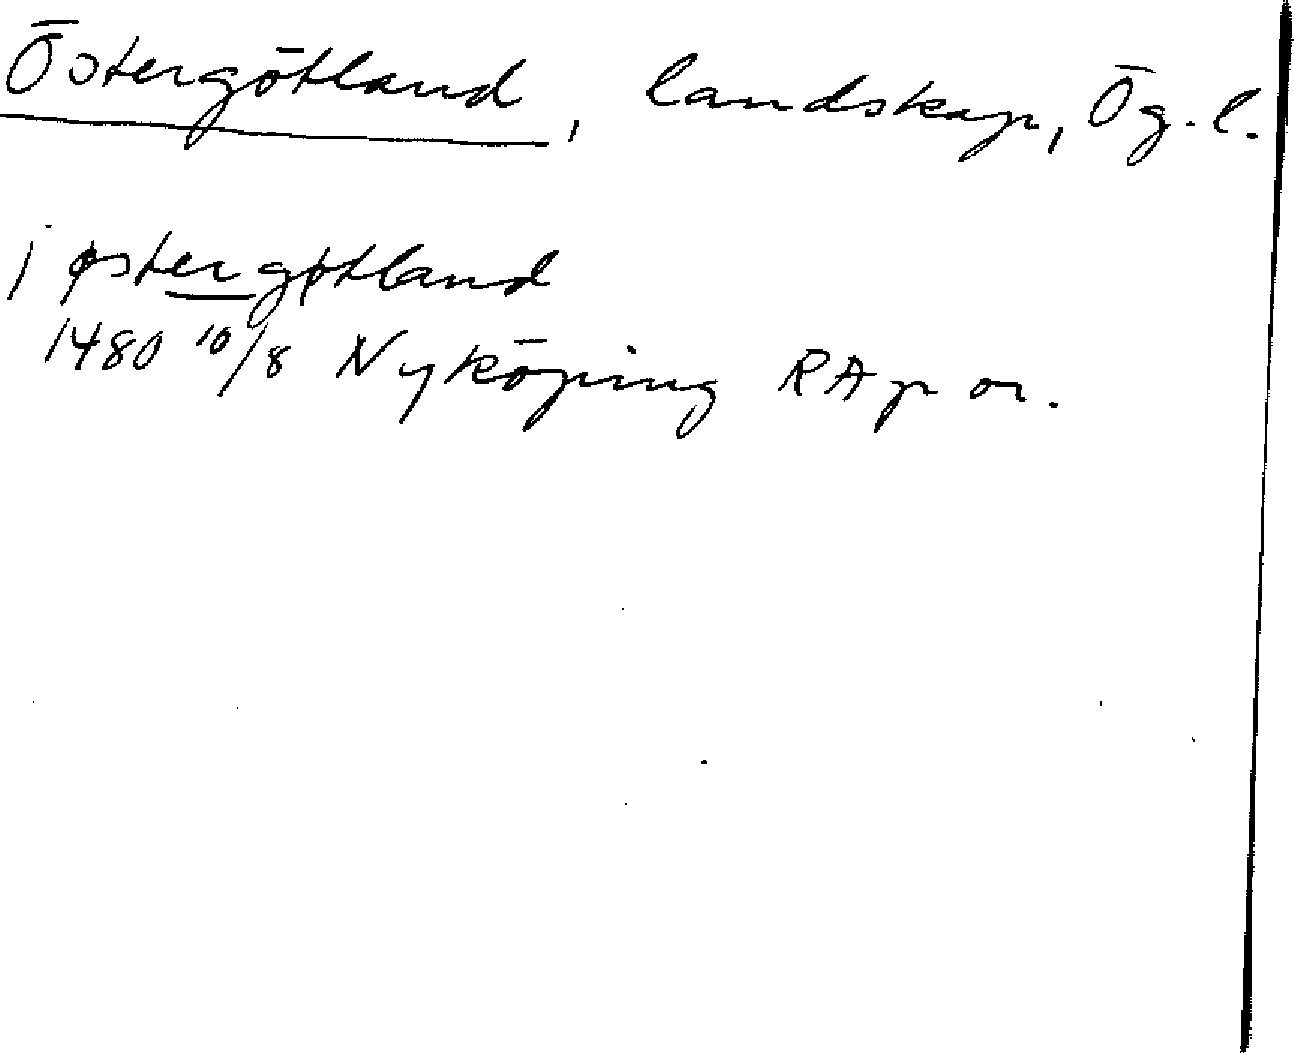 Östergötland, landskap, Ög. l.
j østergøtland
1480 10/8 Nyköping RAp or.